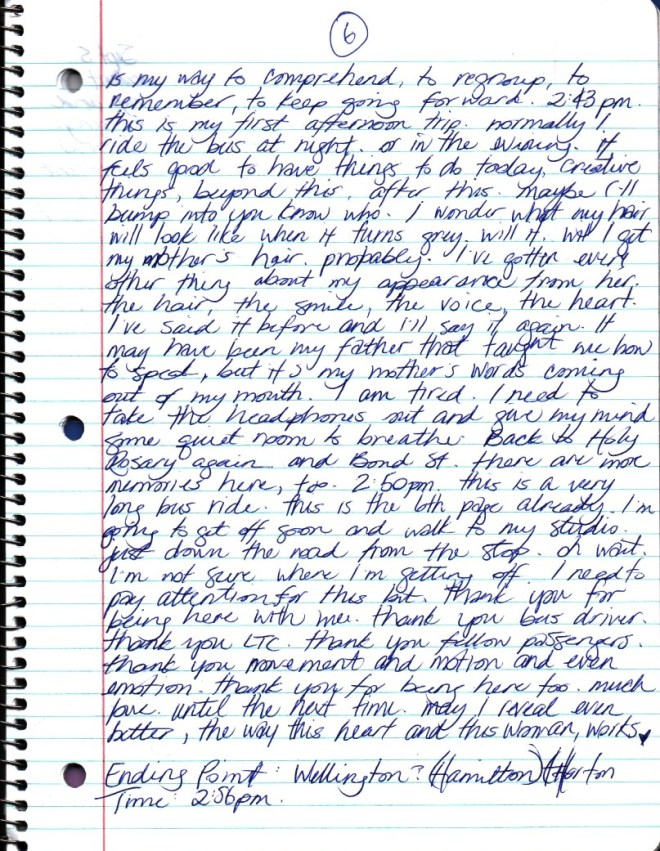 6
is my way to comprehend, to regroup, to
remember, to keep going forward. 2:43 pm.
this is my first afternoon trip. normally I
ride the bus at night. or in the evening. it
feels good to have things to do today, creative
things, beyond this, after this. maybe I'll
bump into you know who. I wonder what my hair
will look like when it turns grey. will it. will I get
my mother's hair. probably. I've gotten every
other thing about my appearance from her.
the hair, the smile, the voice, the heart.
I've said it before and I'll say it again. It
may have been my father that taught me how
to speak, but it's my mother's words coming
out of my mouth. I am tired. I need to
take the headphones out and give my mind
some quiet room to breathe. Back to Holy
Rosary again and Bond St. there are more
memories here, too. 2:50pm. this is a very
long bus ride. this is the 6th page already. I'm
going to get off soon and walk to my studio.
just down the road from the stop. oh wait.
I'm not sure where I'm getting off. I need to
pay attention for this bit. thank you for
being here with me. thank you bus driver.
thank you LTC. thank you fellow passengers.
thank you movement and motion and even
emotion. thank you for being here too. much
love. until the next time. may I reveal even
better, the way this heart and this woman, works
Ending Point: Wellington? (Hamilton) Horton
Time: 2:56pm.